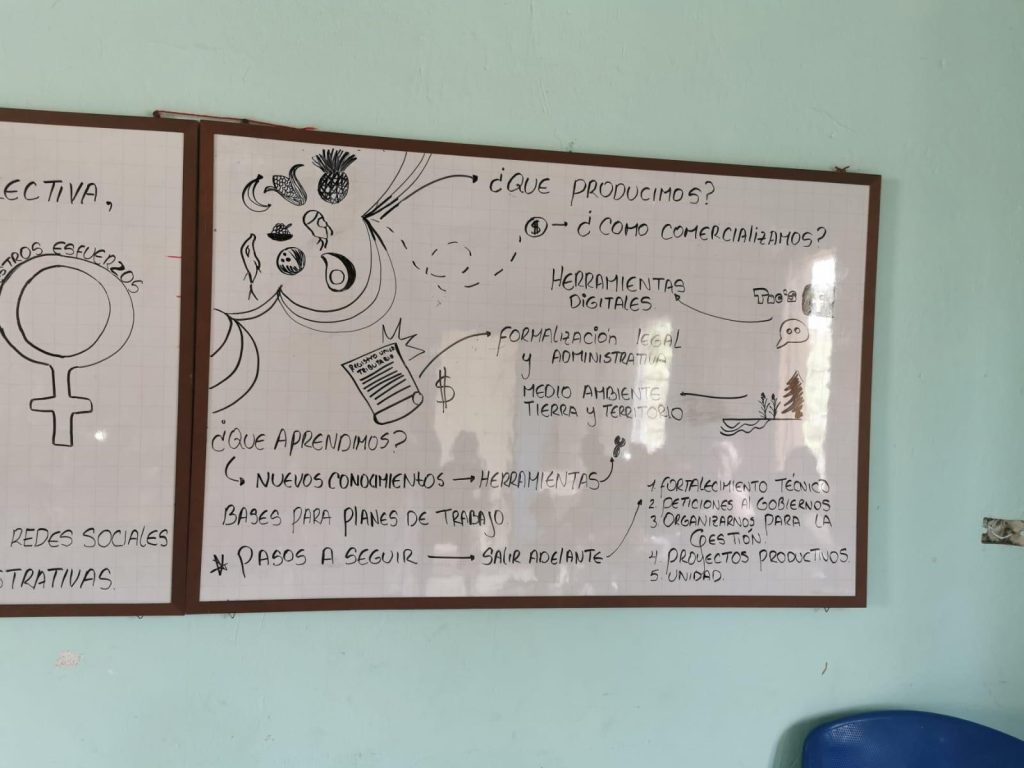 LECTIVA,
STROS ESFUERZOS
REDES SOCIALES
STRATIVAS.
¿QUE PRODUCIMOS?
$ → ¿COMO COMERCIALIZAMOS?
HERRAMIENTAS
DIGITALES
REGISTRO UNICO
TRIBUTARIO
$
FORMALIZACIÓN LEGAL
y ADMINISTRATIVA
MEDIO AMBIENTE
TIERRA y TERRITORIO
¿QUE APRENDIMOS?
NUEVOS CONOCIMIENTOS → HERRAMIENTAS
BASES PARA PLANES DE TRABAJO.
PASOS A SEGUIR → SALIR ADELANTE
1. FORTALECIMIENTO TÉCNICO
2. PETICIONES Al GOBIERNOS
3. ORGANIZARNOS PARA LA
GESTIÓN.
4. PROYECTOS PRODUCTIVOS.
5. UNIDAD.